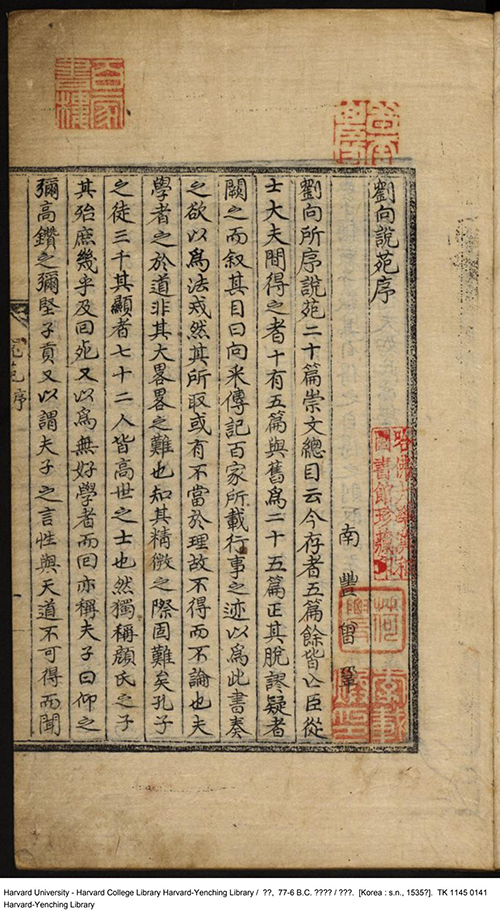 劉向說苑序
南豐曾鞏
劉向所序說苑二十篇崇文總目云今存者五篇餘皆亡臣從
士大夫間得之者十有五篇與舊爲二十五篇正其脫謬疑者
闕之而叙其目曰向采傳記百家所載行事之迹以爲此書奏
之欲以爲法戒然其所取或有不當於理故不得而不論也夫
學者之於道非其大畧畧之難也知其精微之際固難矣孔子
之徒三千其顯者七十二人皆高世之士也然獨稱顔氏之子
其殆庶幾乎及回死又以爲無好學者而回亦稱夫子曰仰之
彌高鑽之彌堅子貢又以謂夫子之言性與天道不可得而聞
苑序
百家書樓
哈佛大學漢和圖書館珍藏印
Harvard University - Harvard College Library Harvard-Yenching Library / ??, 77-6 B.C. ???? / ???. [Korea : s.n., 1535?]. TK 1145 0141
Harvard-Yenching Library